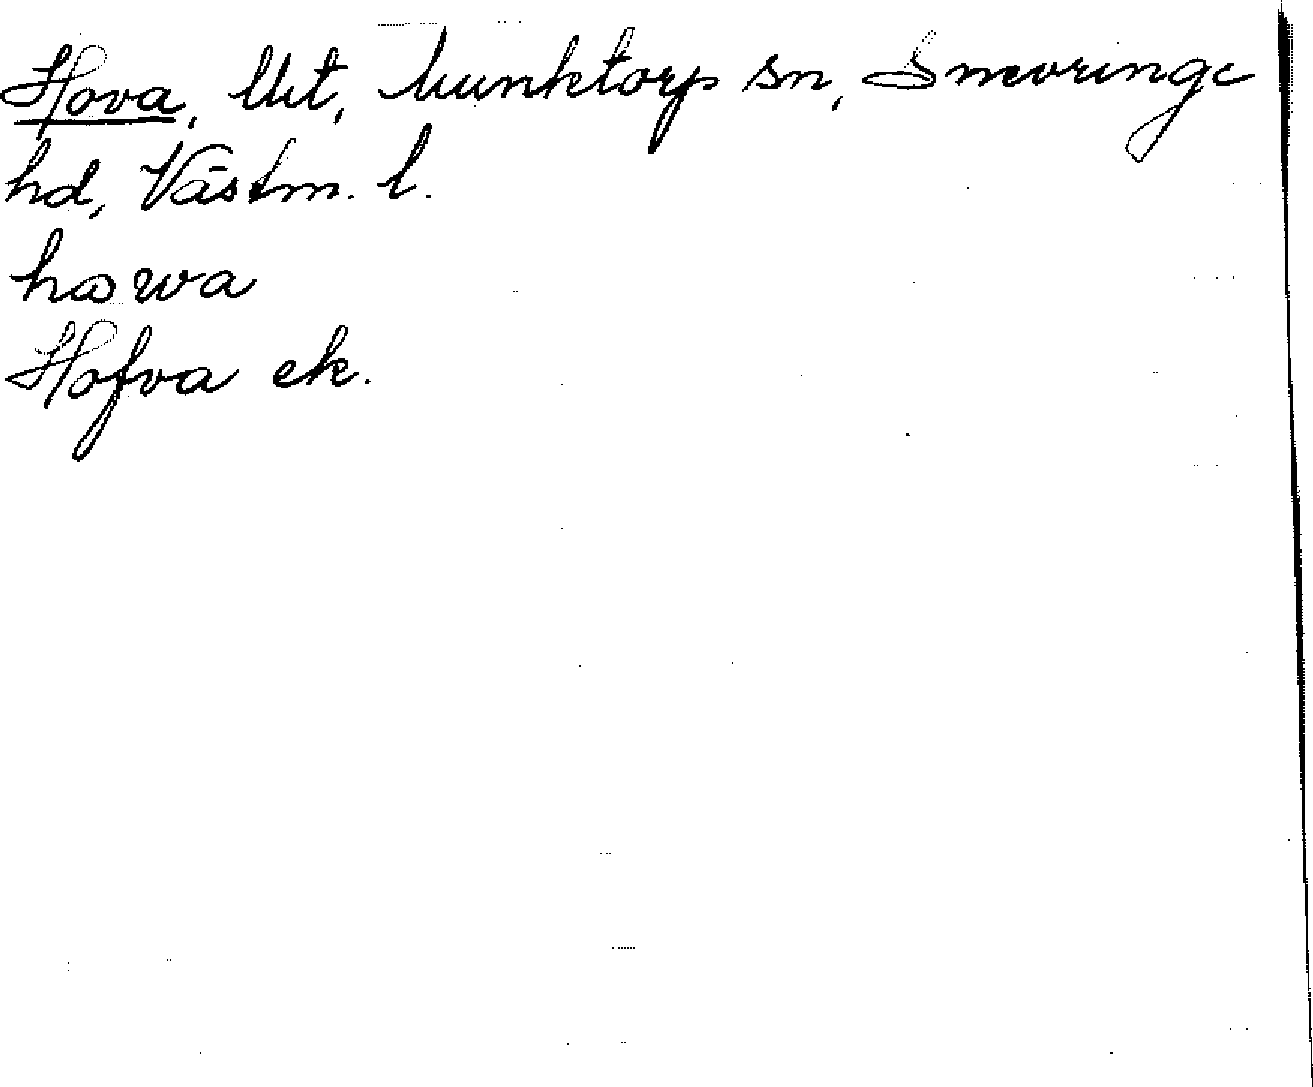 Hova, lht, Munktorp sn, Snevringe
hd, Västm. l.
hɷwa
Hofva ek.